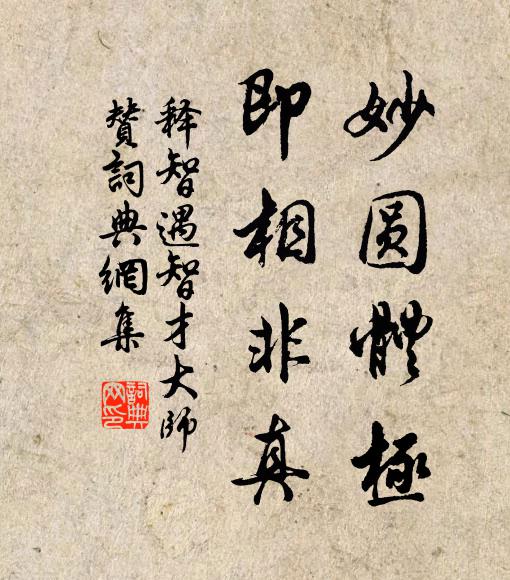 妙圆體極
即相非真
释智遇智才大師
贊詞典網集
詞典
网印